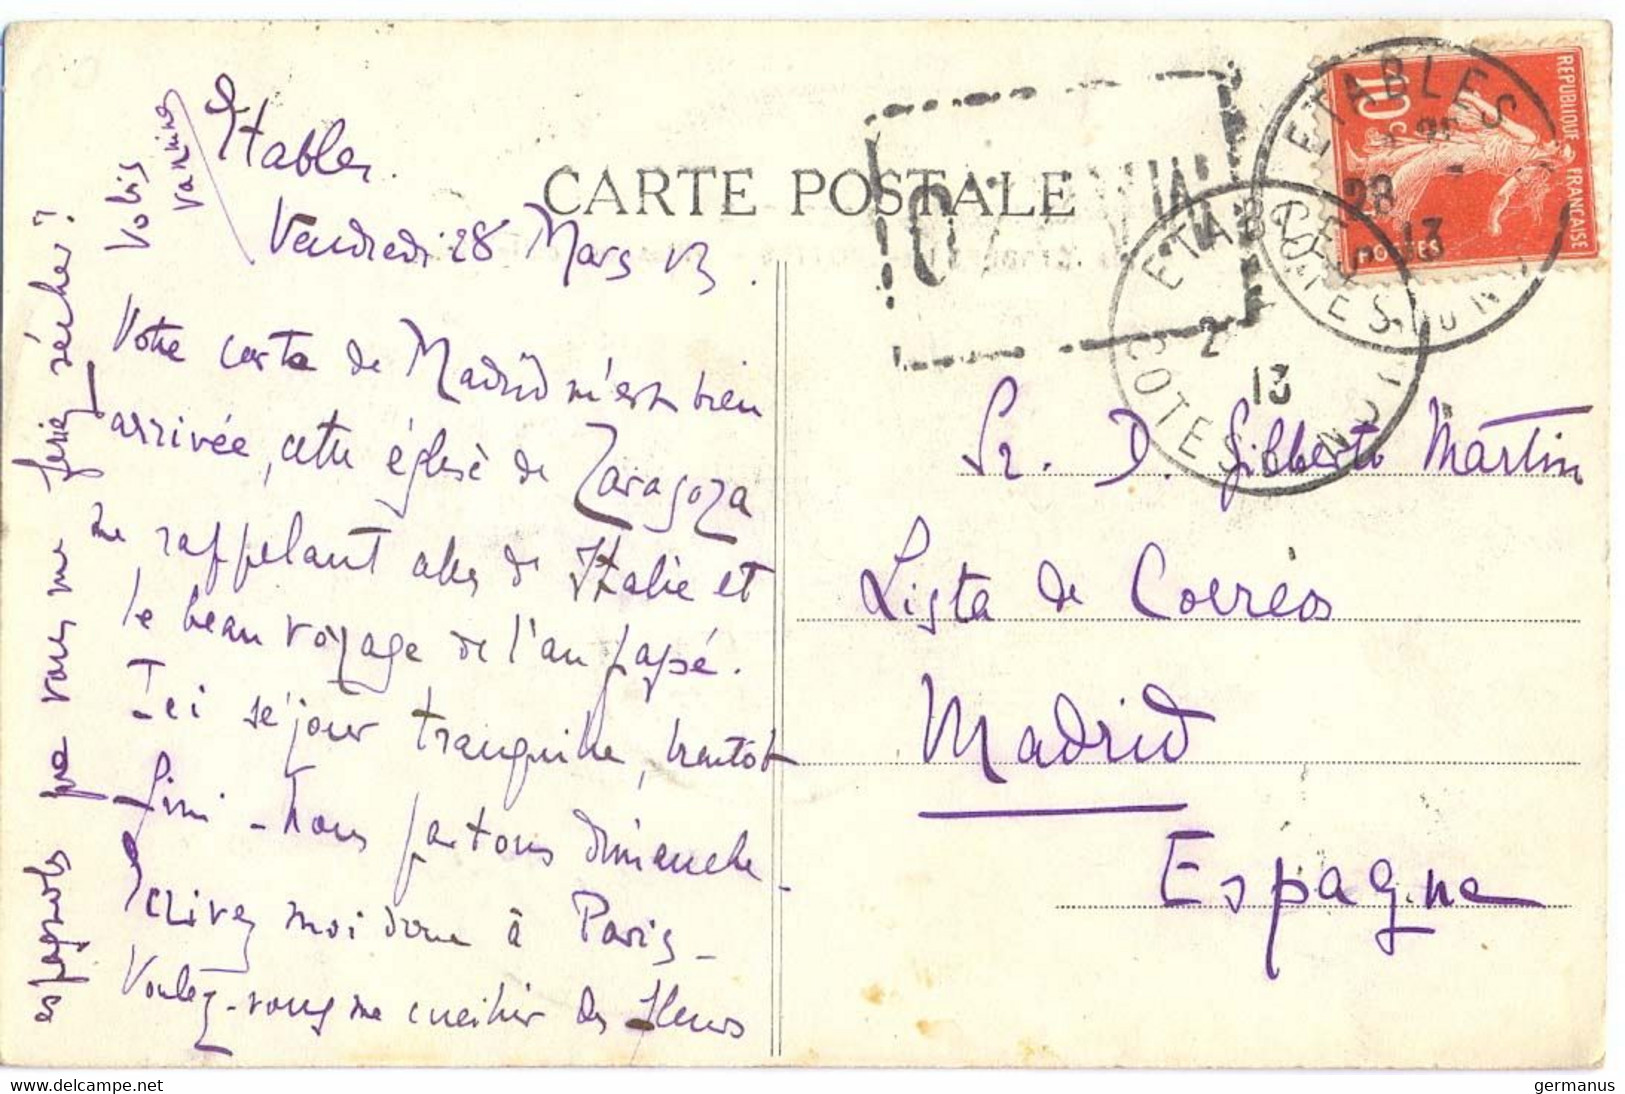 CARTE POSTALE
Etables
Vendredi 28 Mars 13.
Votre carte de Madrid m'est bien
arrivée, cette église de Zaragoza
me rappelant celles de Italie et
le beau voyage de l'an passé.
Ici séjour tranquille, bientôt
fini - Nous partons dimanche -
Ecrivez moi donc à Paris -
Voulez-vous me cueillir des fleurs
espagnoles que vous me ferez sécher?
REPUBLIQUE FRANÇAISE
10
POSTES
ETABLES
28
13
COTES DU NORD
ETABLES
2
13
COTES DU NORD
Sr. D. Gilberto Martin
Lista de Correos
Madrid
Espagne
germanus
delcampe.net